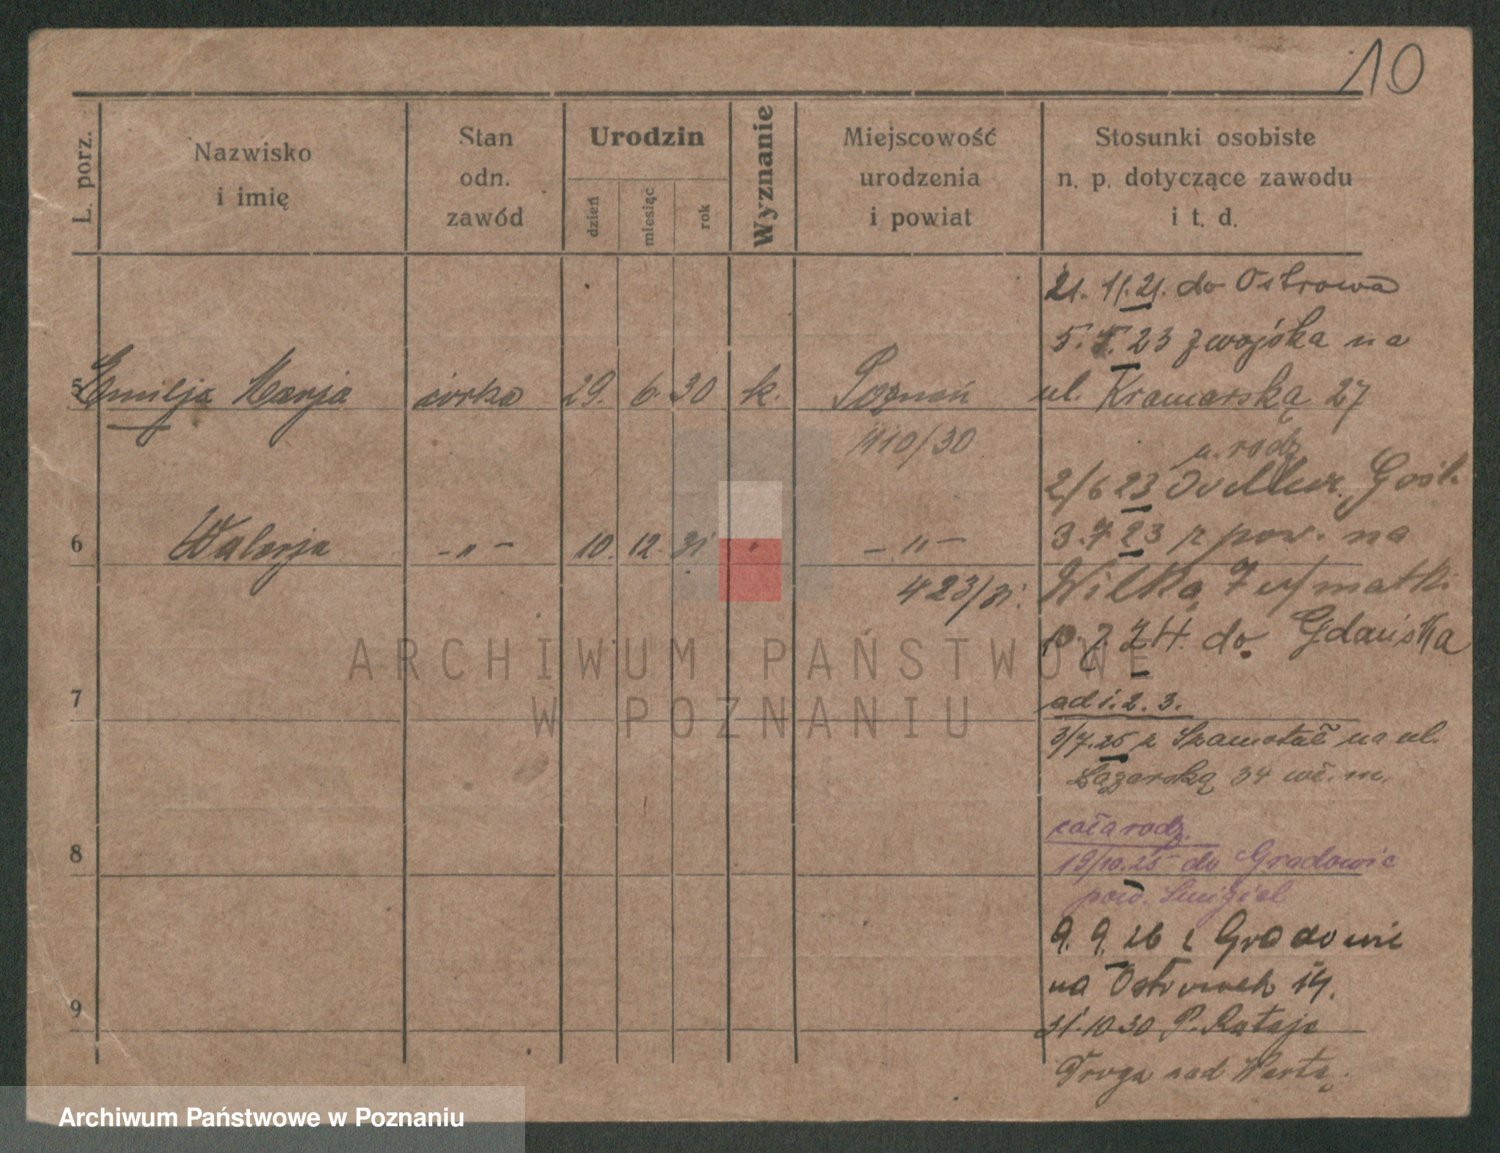 10
L. porz.
Nazwisko
i imię
Stan
odn.
zawód
Urodzin
dzień
miesiąc
rok
Wyznanie
Miejscowość
urodzenia
i powiat
Stosunki osobiste
n. p. dotyczące zawodu
i t. d.
21. 11. 21. do Ostrowa
5. 23 z wojska na
5 Emilja Marja córka 29. 6 30 k. Poznań ul. Kramarską 27
1110/30 rodz
2/6 23 Gośl.
6 Walerja -„- 10. 12. 31 " -„- 3. 7 23 z pow. na
423/31. Wilką 7 matki
10. 7. 24. do Gdańska
7
ad 1. 2. 3.
3/7. 25 z Szamotuł na ul.
Łazarską 34 m.
8
cała rodz.
19/10. 25 do Gradowic
pow. Śmigiel
9. 9. 26 z Gradowic
na Ostrówek 14.
9
31. 10 30 P. Rataje
Droga nad Wartą.
ARCHIWUM PAŃSTWOWE
W POZNANIU
Archiwum Państwowe w Poznaniu